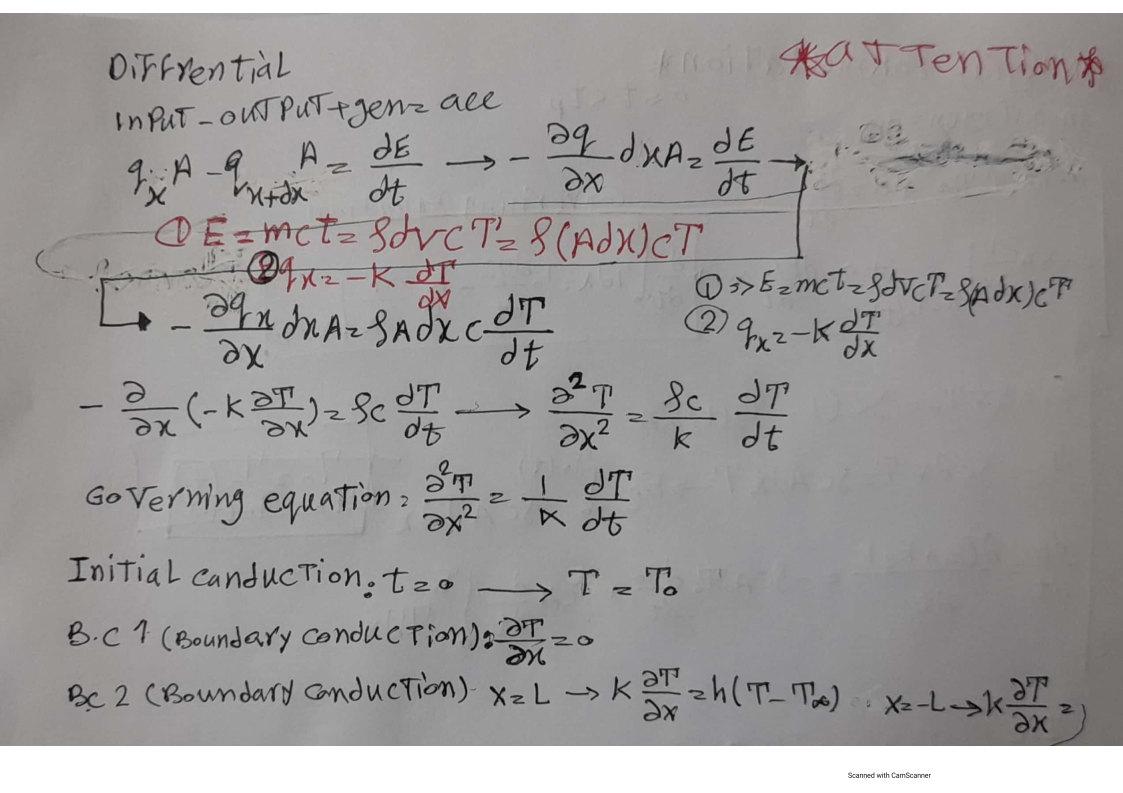 *ATTENTION*
Diffrential
INPUT - OUTPUT + gen = acc
q_x A - q_{x+dx} A = dE/dt → - ∂q/∂x dxA = dE/dt →
① E = mct = ρdvcT = ρ(Adx)cT
② q_x = -K dT/dx
① => E = mct = ρdVcT = ρ(Adx)cT
② q_x = -K dT/dx
- ∂q_x/∂x dxA = ρAdxC dT/dt
- ∂/∂x (-K ∂T/∂x) = ρc dT/dt → ∂²T/∂x² = ρc/k dT/dt
Governing equation: ∂²T/∂x² = 1/α dT/dt
Initial canduction: t=0 → T = T₀
B.C 1 (Boundary conduction): ∂T/∂x = 0
BC 2 (Boundary conduction) x=L → K ∂T/∂x = h(T - T∞) . x=-L → k ∂T/∂x =
Scanned with CamScanner